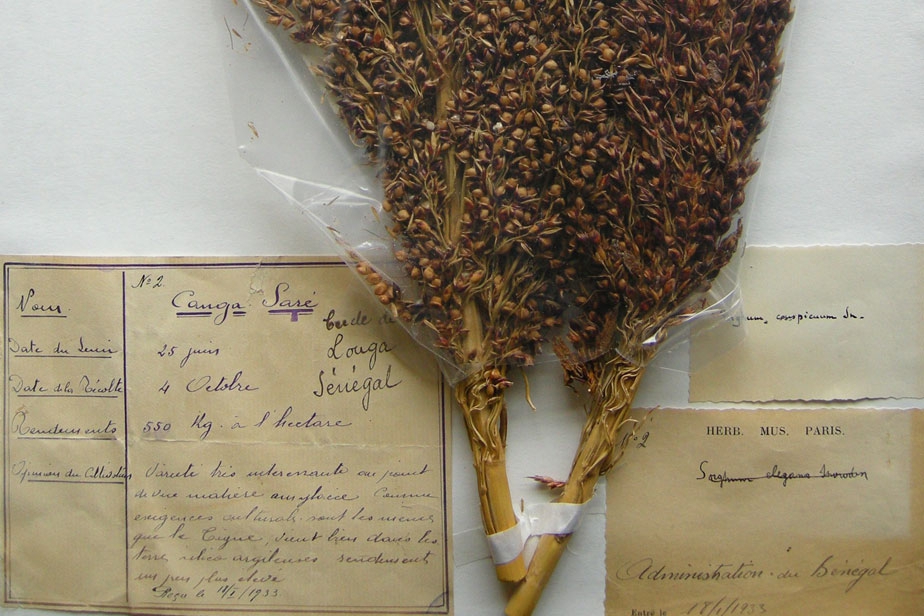 No. 2.
Nom. Canga Saré
Cercle de
Louga
Sénégal
Date du Semis 25 juin
Date de la Récolte 4 Octobre
Rendements 550 Kg. à l'hectare
Opinion du Cultivateur Variété très intéressante au point
de vue matière amylacée Comme
exigences culturales sont les mêmes
que le Tigne, vient bien dans les
terres silico argileuses rendements
un peu plus élevé
Reçu le 14/I/1933
conspicuum Sn.
No 2
HERB. MUS. PARIS.
Sorghum elegans Snowden
Administration du Sénégal
Entré le 18/1/1933